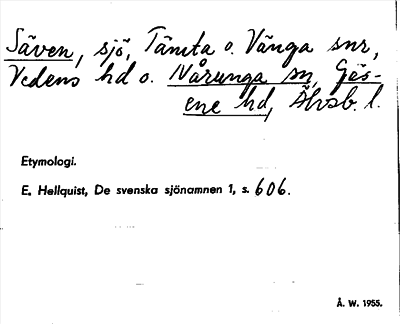 Säven, sjö, Tämta o. Vänga snr,
Vedens hd o. Nårunga sn, Gäs-
ene hd, Älvsb. l.
Etymologi.
E. Hellquist, De svenska sjönamnen 1, s. 606.
Å. W. 1955.